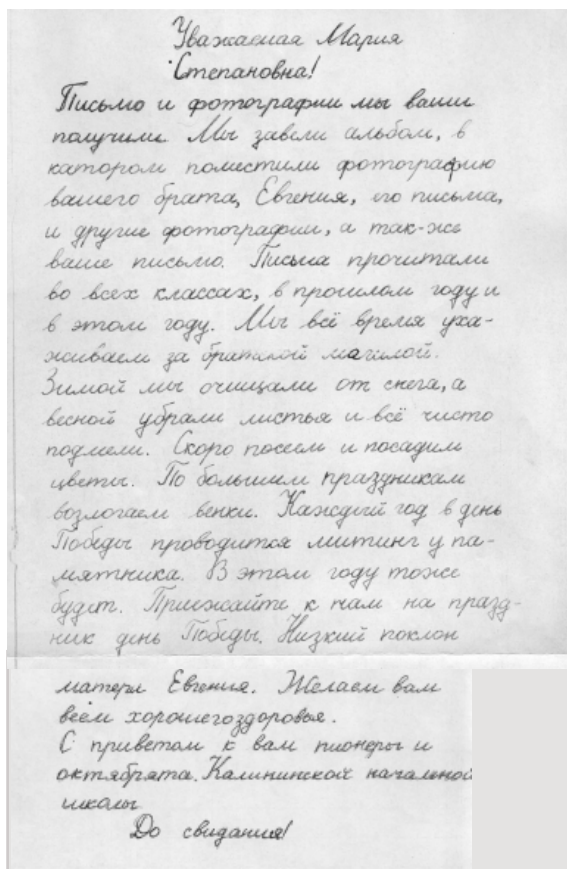 Уважаемая Мария
Степановна!
Письмо и фотографии мы ваши
получили. Мы завели альбом, в
катором поместили фотографию
вашего брата, Евгения, его письма,
и другие фотографии, а так-же
ваше письмо. Письма прочитали
во всех классах, в прошлом году и
в этом году. Мы всё время уха-
живаем за братской магилой.
Зимой мы очищали от снега, а
весной убрали листья и всё чисто
подмели. Скоро посеем и посадим
цветы. По большим праздникам
возлогаем венки. Каждый год в день
Победы проводится митинг у па-
мятника. В этом году тоже
будет. Приежайте к нам на празд-
ник день Победы. Низкий поклон
матери Евгения. Желаем вам
всем хорошегоздоровья.
С приветом к вам пионеры и
октябрята. Калининской начальной
школы
До свидания!